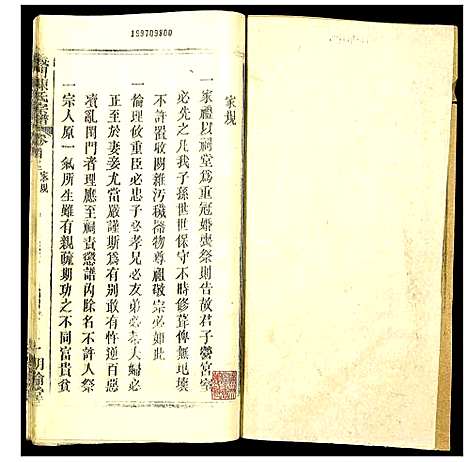 199709800
家規
一家禮以祠堂爲重冠婚喪祭則告故君子營宮室
必先之凡我子孫世世保守不時修葺俾無圮壞
不許置收閑雜污穢器物尊祖敬宗必如此
一倫理攸重臣必忠子必孝兄必友弟必恭夫婦必
正至於妻妾尤當嚴謹斯爲有别敢有忤逆百惡
瀆亂閨門者理應至祠責懲譜內除名不許入祭
一宗人原一氣所生雖有親疏期功之不同富貴貧
陳氏宗譜
家規
明倫堂